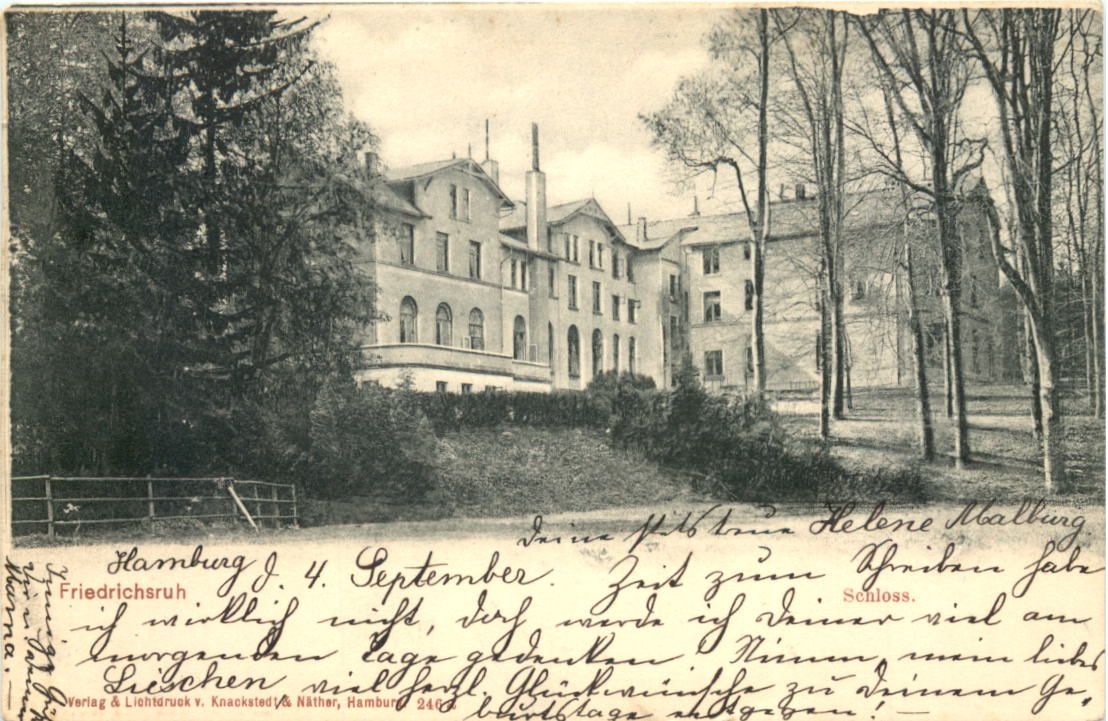 Hamburg d. 4. September. Zeit zum Schreiben habe
ich wirklich nicht, doch werde ich Deiner viel am
morgenden Tage gedenken. Nimm, mein liebes
Lieschen viel herzl. Glückwünsche zu Deinem Ge-
burtstage entgegen! —
Deine stets treue Helene Malburg.
Friedrichsruh
Schloss.
Verlag & Lichtdruck v. Knackstedt & Näther, Hamburg 246
Mama. —